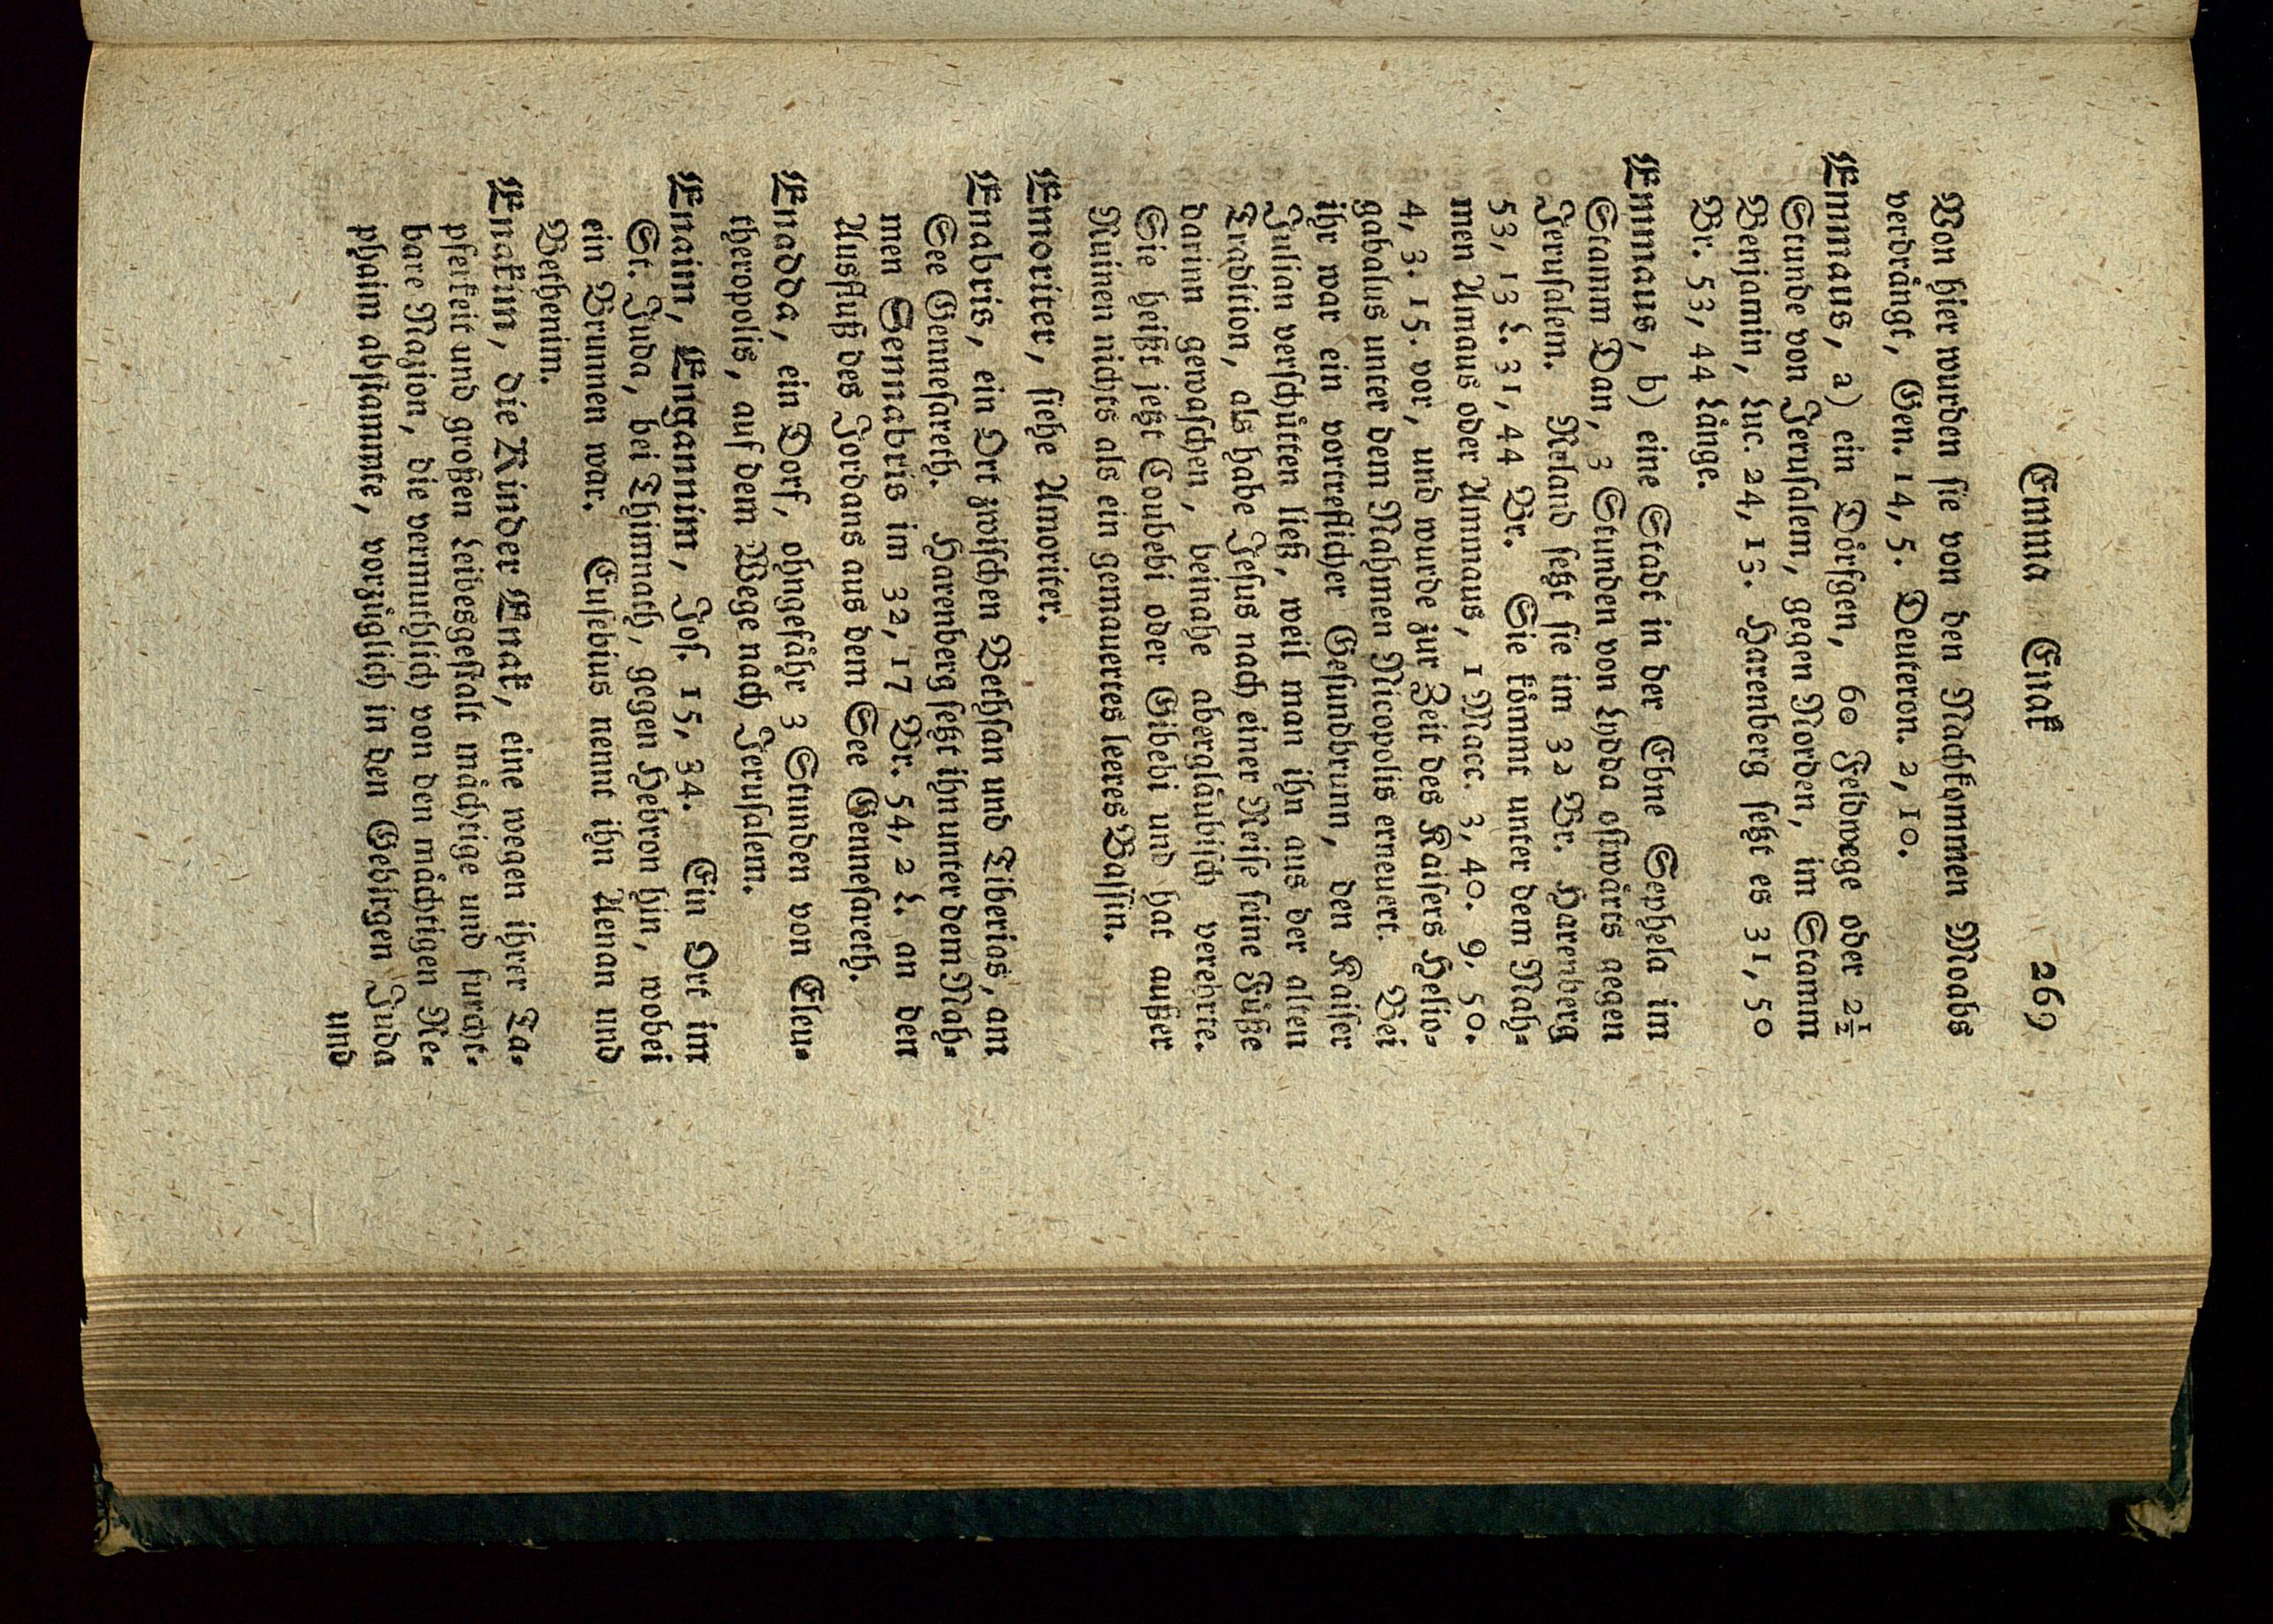 Emma Enak 269
Von hier wurden ſie von den Nachkommen Moabs
verdrångt, Gen. 14, 5. Deuteron. 2, 10.
Emmaus, a) ein Dörfgen, 60 Feldwege oder 2½
Stunde von Jeruſalem, gegen Norden, im Stamm
Benjamin, Luc. 24, 13. Harenberg ſetzt es 31, 50
Br. 53, 44 Långe.
Emmaus, b) eine Stadt in der Ebne Sephela im
Stamm Dan, 3 Stunden von Lydda oſtwårts gegen
Jeruſalem. Reland ſetzt ſie im 32 Br. Harenberg
53, 13 L. 31, 44 Br. Sie kömmt unter dem Nah⸗
men Amaus oder Ammaus, 1 Macc. 3, 40. 9, 50.
4, 3. 15. vor, und wurde zur Zeit des Kaiſers Helio⸗
gabalus unter dem Nahmen Nicopolis erneuert. Bei
ihr war ein vortreflicher Geſundbrunn, den Kaiſer
Julian verſchůtten ließ, weil man ihn aus der alten
Tradition, als habe Jeſus nach einer Reiſe ſeine Fůße
darinn gewaſchen, beinahe abergläubiſch verehrte.
Sie heißt jetzt Coubebi oder Gibebi und hat außer
Ruinen nichts als ein gemauertes leeres Baſſin.
Emoriter, ſiehe Amoriter.
Enabris, ein Ort zwiſchen Bethſan und Tiberias, am
See Genneſareth. Harenberg ſetzt ihn unter dem Nah⸗
men Sennabris im 32, 17 Br. 54, 2 L. an den
Ausfluß des Jordans aus dem See Genneſareth.
Enadda, ein Dorf, ohngefåhr 3 Stunden von Eleu⸗
theropolis, auf dem Wege nach Jeruſalem.
Enaim, Engannim, Joſ. 15, 34. Ein Ort im
St. Juda, bei Thimnath, gegen Hebron hin, wobei
ein Brunnen war. Euſebius nennt ihn Aenan und
Bethenim.
Enakim, die Kinder Enak, eine wegen ihrer Ta⸗
pferkeit und großen Leibesgeſtalt måchtige und furcht⸗
bare Nazion, die vermuthlich von den måchtigen Re⸗
phaim abſtammte, vorzůglich in den Gebirgen Juda
und